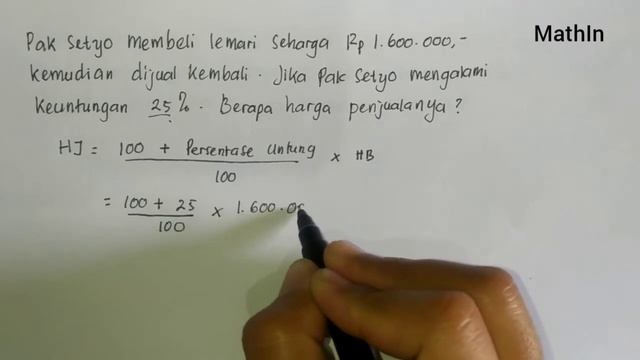 MathIn
Pak Setyo membeli lemari seharga Rp 1.600.000,-
kemudian dijual kembali. Jika Pak Setyo mengalami
keuntungan 25%. Berapa harga penjualanya?
HJ = 100 + Persentase Untung / 100 × HB
= 100 + 25 / 100 × 1.600.00